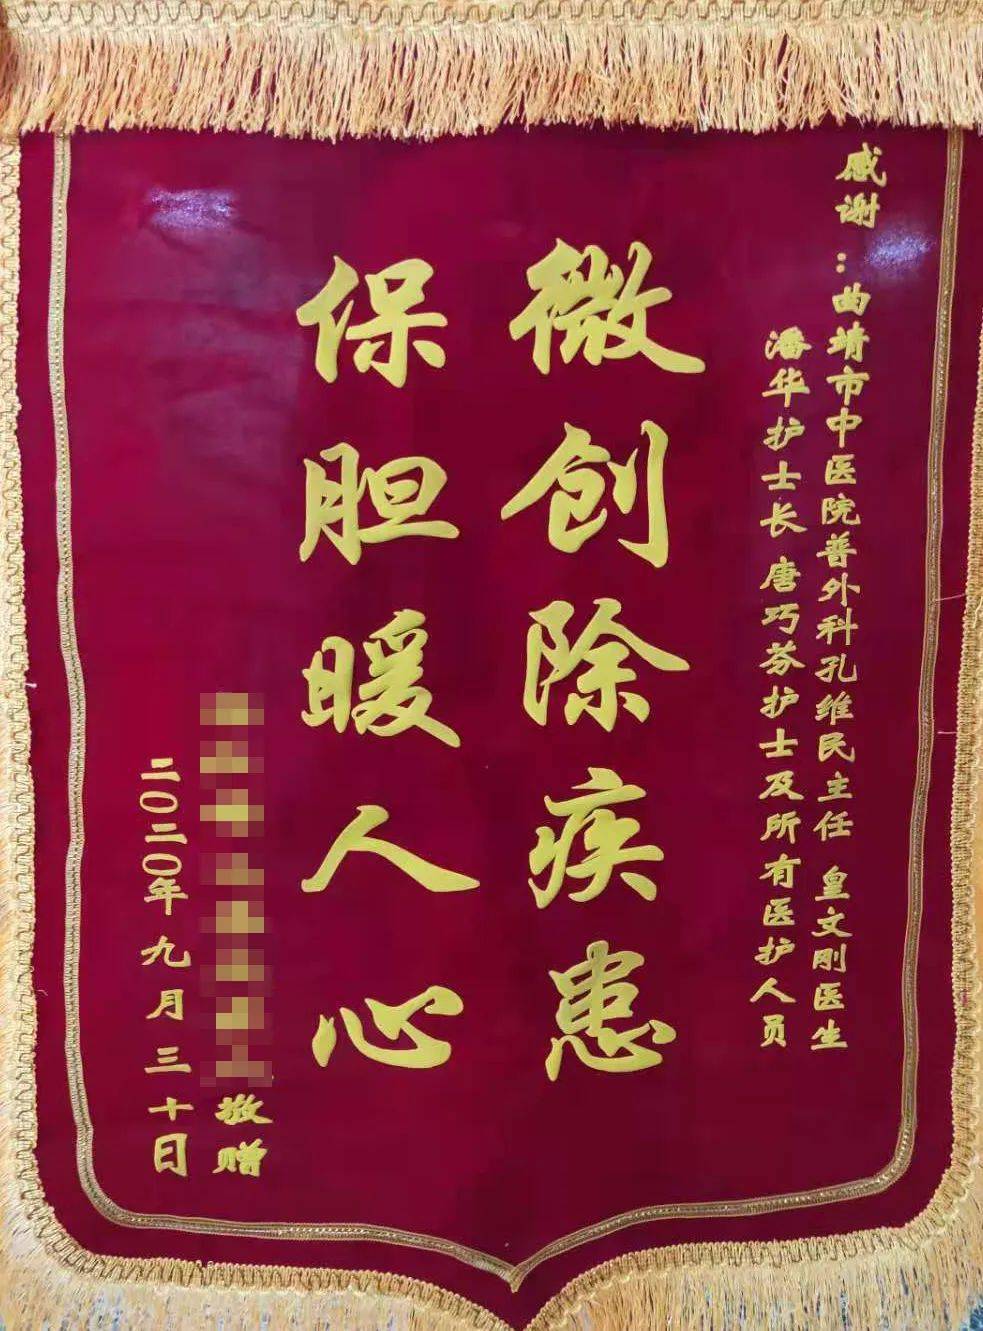 感谢：曲靖市中医院普外科孔维民主任 皇文刚医生
潘华护士长 唐巧芬护士及所有医护人员
微创除疾患
保胆暖人心
敬赠
二〇二〇年九月三十日